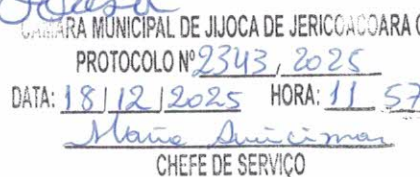 CÂMARA MUNICIPAL DE JIJOCA DE JERICOACOARA
PROTOCOLO Nº 2343, 2025
DATA: 18/12/2025 HORA: 11 57
Maria
CHEFE DE SERVIÇO